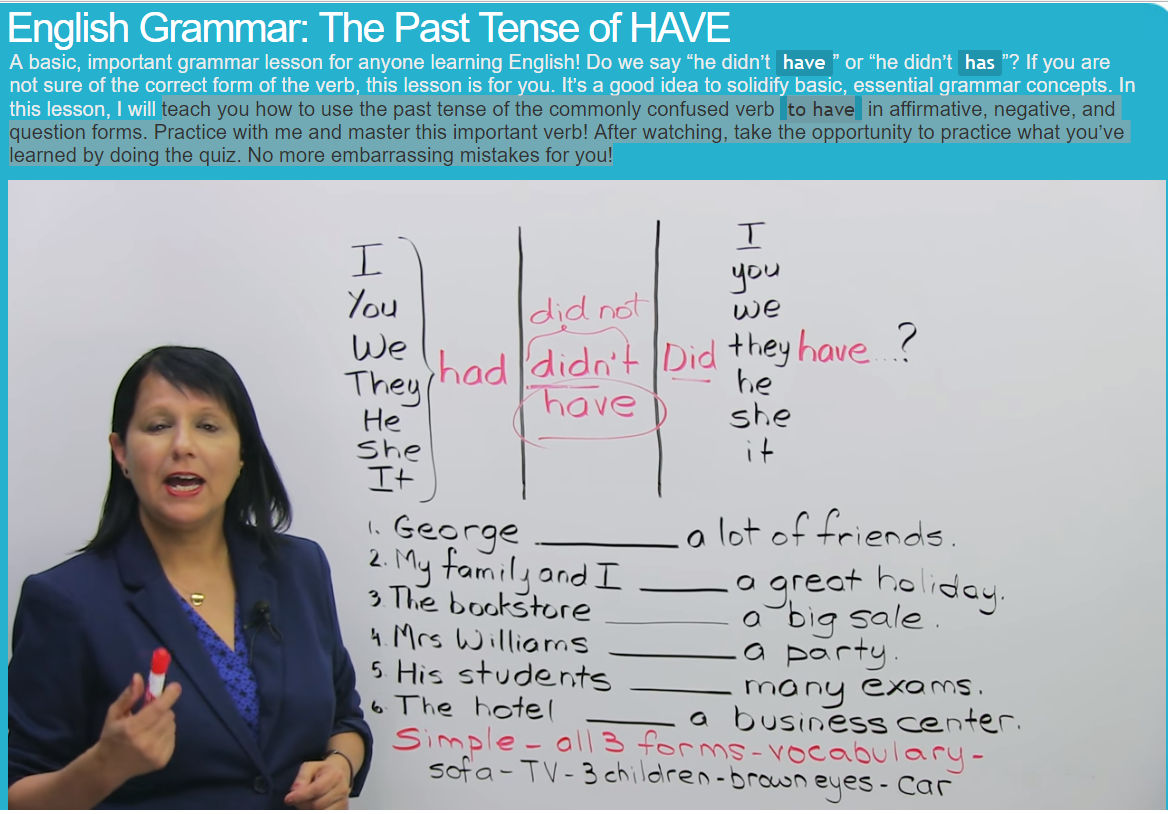 English Grammar: The Past Tense of HAVE
A basic, important grammar lesson for anyone learning English! Do we say “he didn’t have ” or “he didn’t has ”? If you are
not sure of the correct form of the verb, this lesson is for you. It’s a good idea to solidify basic, essential grammar concepts. In
this lesson, I will teach you how to use the past tense of the commonly confused verb to have in affirmative, negative, and
question forms. Practice with me and master this important verb! After watching, take the opportunity to practice what you’ve
learned by doing the quiz. No more embarrassing mistakes for you!
I
You
We
They
He
She
It
had
did not
didn't
have
Did
I
you
we
they
he
she
it
have...?
1. George ______ a lot of friends.
2. My family and I ______ a great holiday.
3. The bookstore ______ a big sale.
4. Mrs Williams ______ a party.
5. His students ______ many exams.
6. The hotel ______ a business center.
Simple - all 3 forms - vocabulary -
sofa - TV - 3 children - brown eyes - car